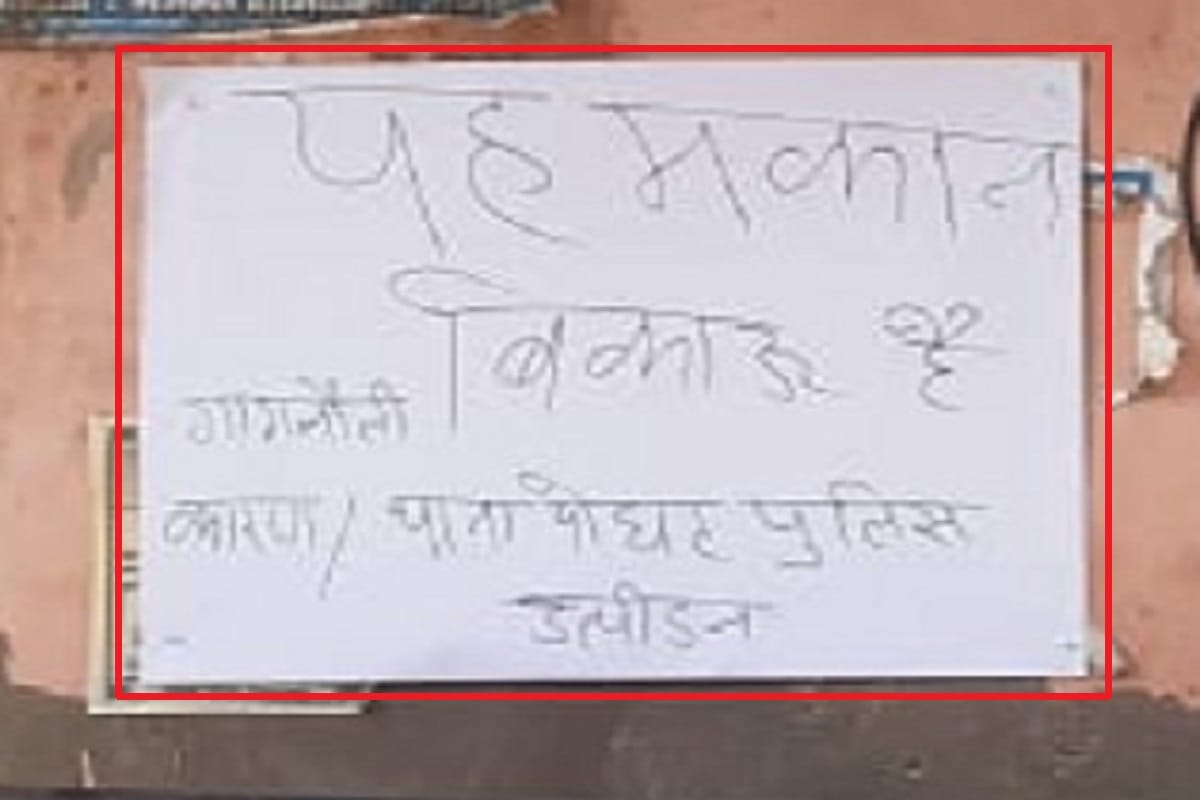 यह मकान
बिकाऊ है
गागलौली
कारण/ थाना पोघट पुलिस
उत्पीडन